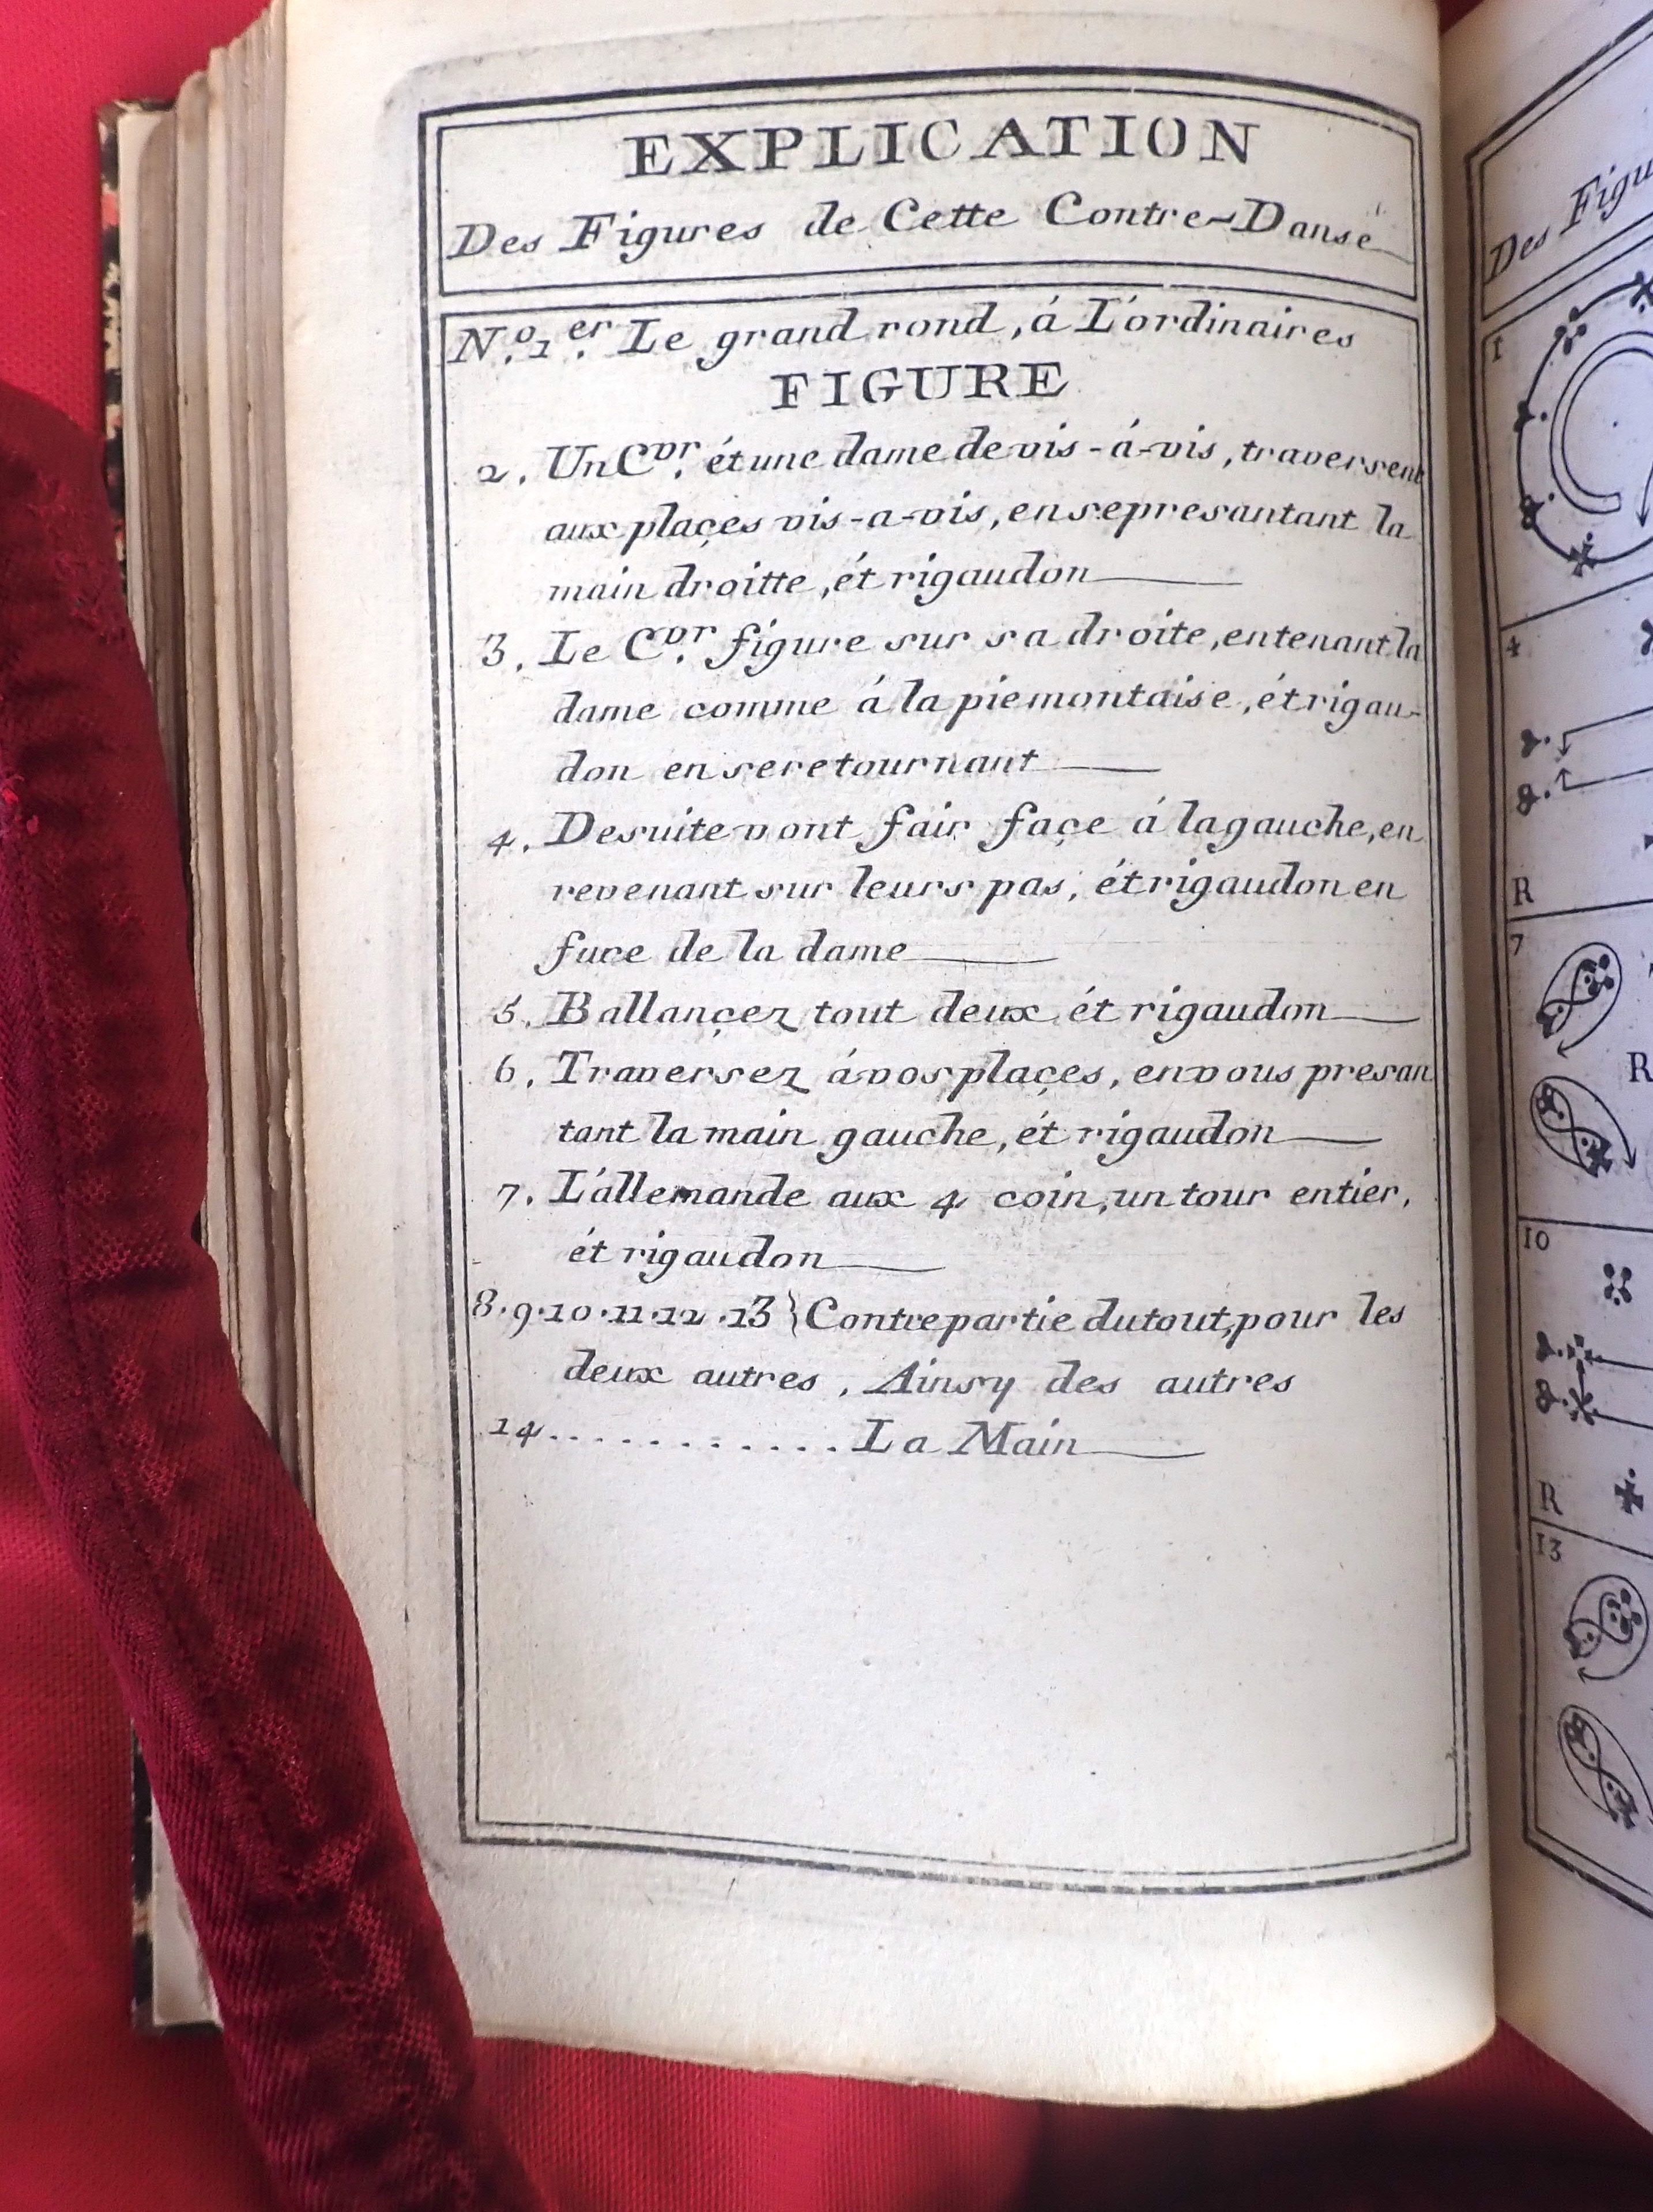 EXPLICATION
Des Figures de Cette Contre-Danse
N.º 1.er Le grand rond, á L'ordinaires
FIGURE
2. Un C.vr ét une dame de vis-á-vis, traversent
aux plaçes vis-a-vis, en se presantant la
main droitte, ét rigaudon
3. Le C.vr figure sur sa droite, en tenant la
dame comme á la piemontaise, ét rigau-
don en se retournant
4. De suite vont fair façe á la gauche, en
revenant sur leurs pas, ét rigaudon en
face de la dame
5. Ballançez tout deux ét rigaudon
6. Traversez á vos plaçes, en vous presan
tant la main gauche, ét rigaudon
7. L'allemande aux 4 coin, un tour entier,
ét rigaudon
8.9.10.11.12.13} Contrepartie du tout, pour les
deux autres, Ainsy des autres
14............La Main
Des Figu
1
4
R
7
R
10
R
13